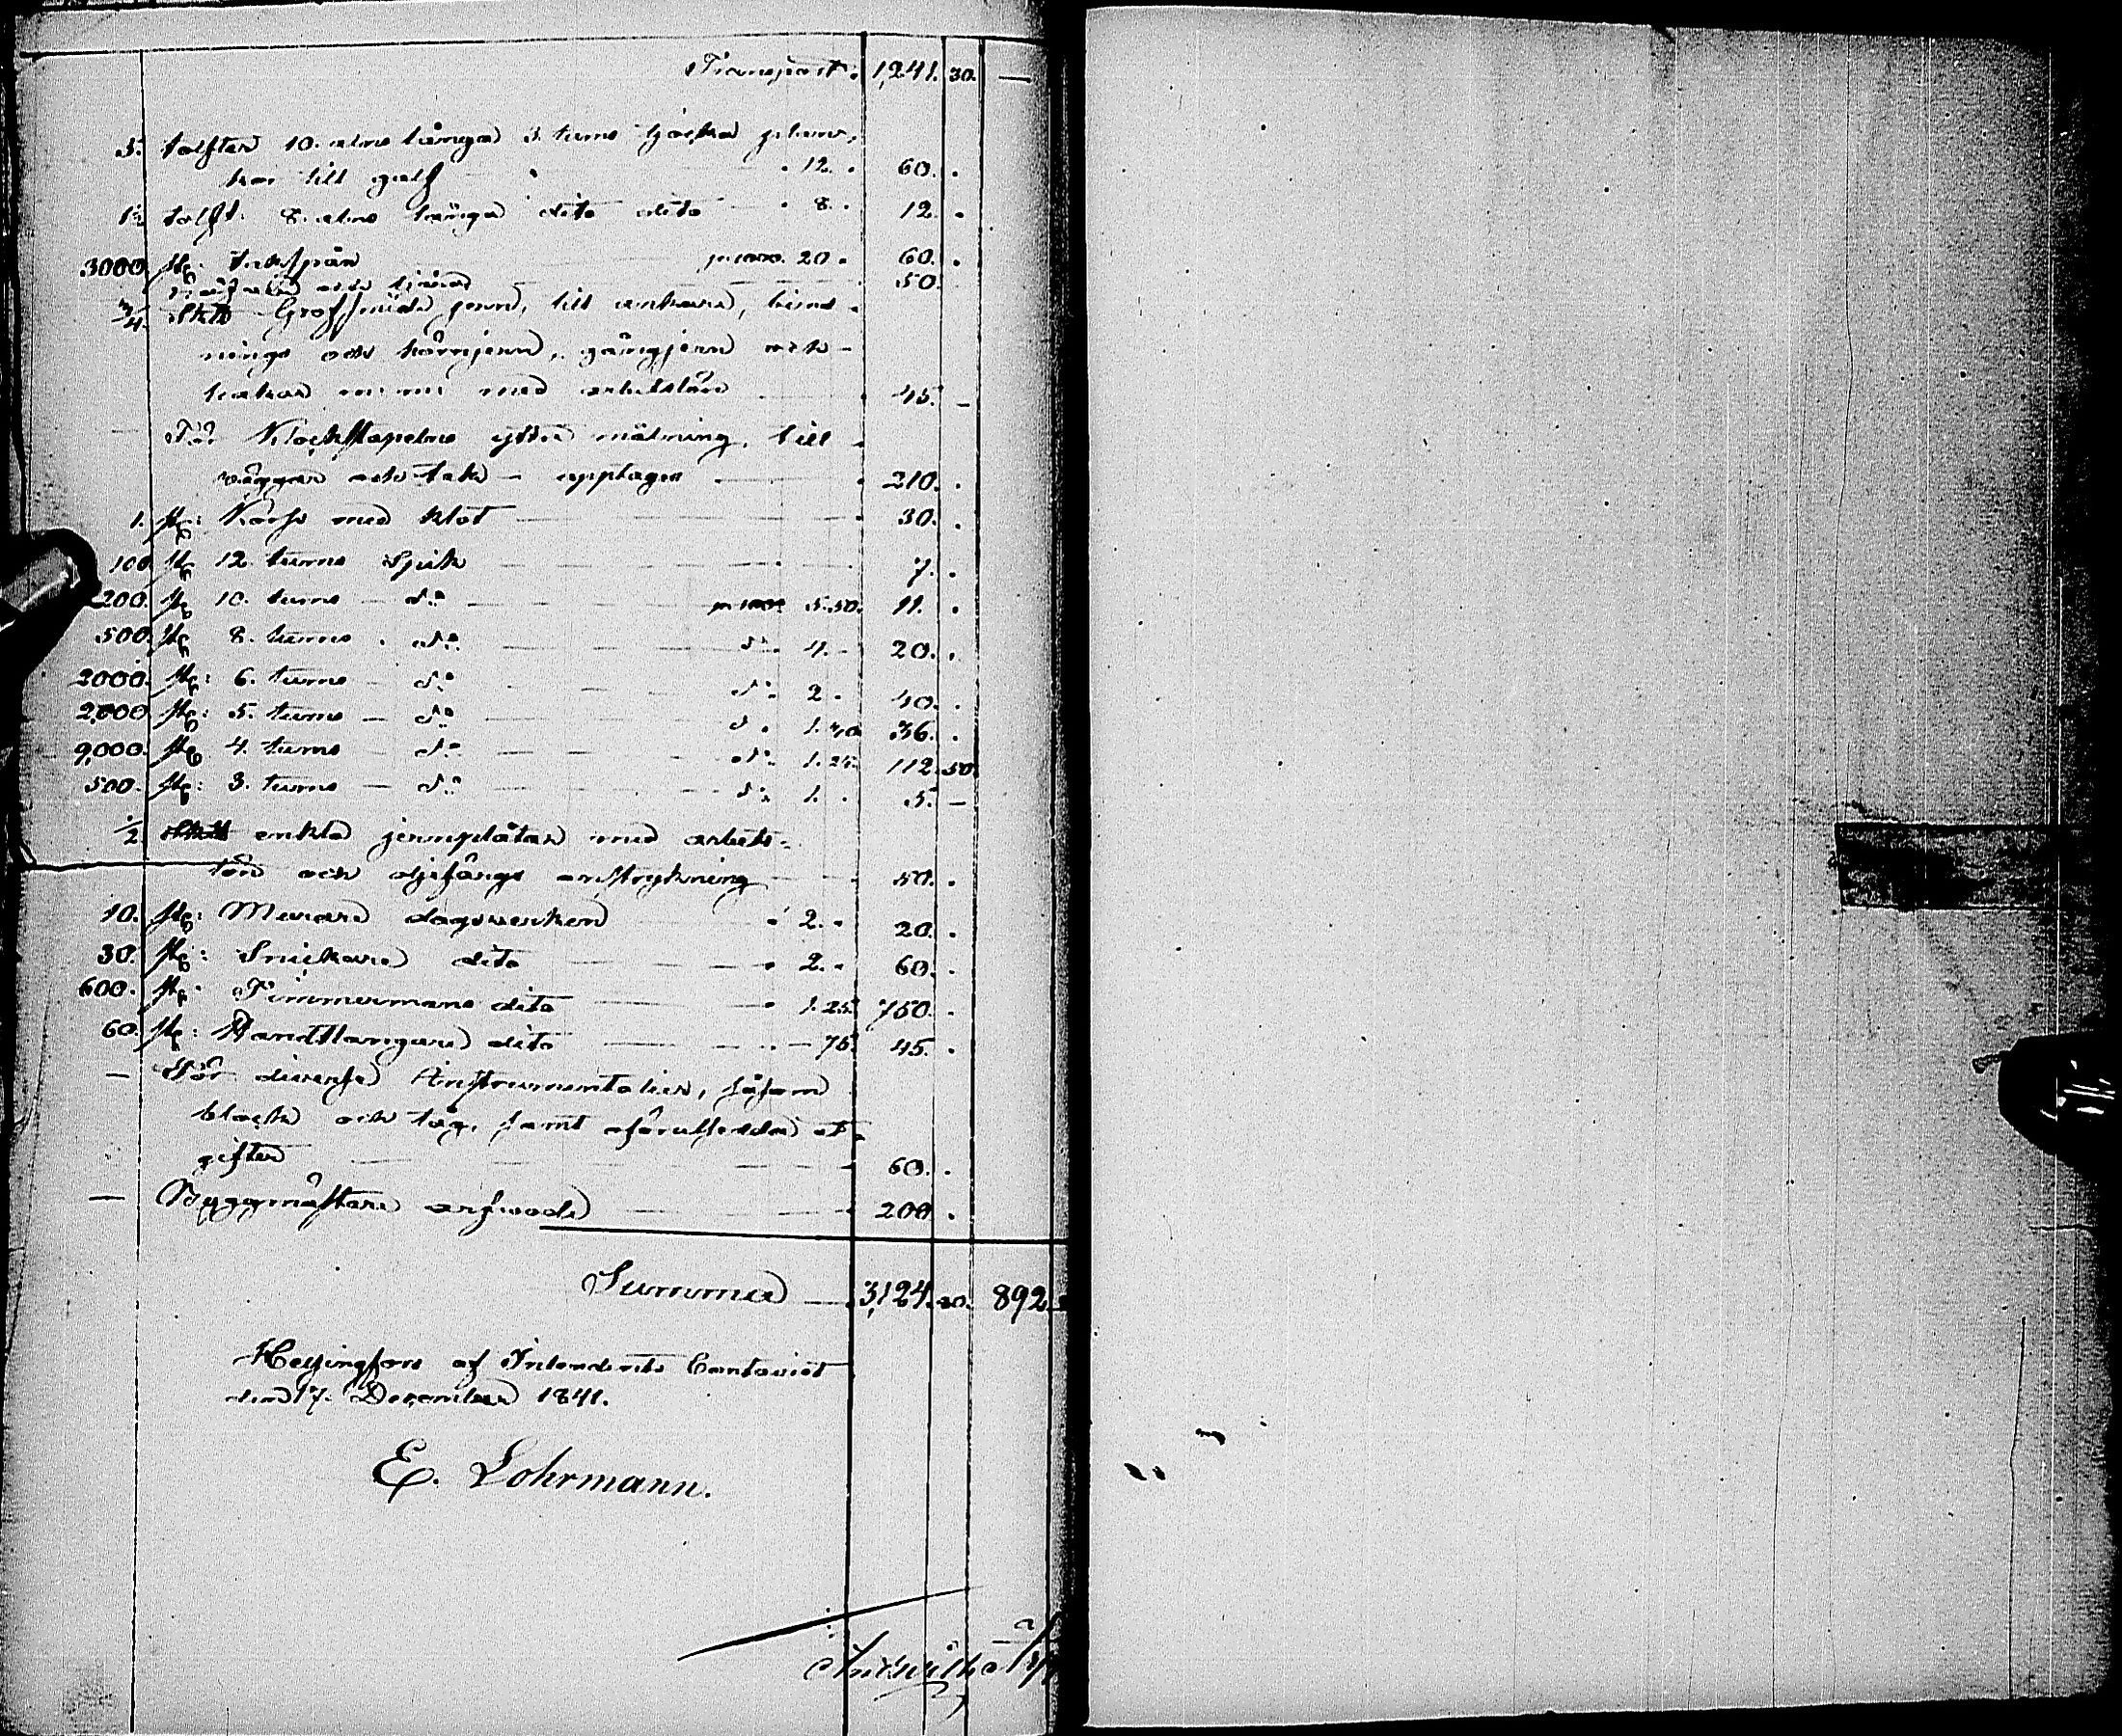 Transport. 1,241. 30. —
5. tolfter 10. alns långa 3. tums tjocka plan-
kor till golf " 12. " 60. "
1½ tolft. 8. alns långa dito dito " 8. " 12. "
3000 st: takspån pr 1000. 20. " 60. "
och tjära 50.
¾. Sk℔ Grofsmide jern, till ankare, bind-
nings och hörnjern, gångjern och
hakar m: m: med arbetslön 45. —
— För Klockstapelns yttre målning, till
väggar och tak — upptages 210. "
1. st: Kors med klot 30. "
100 st 12. tums Spik 7. "
200. st 10. tums — do pr 100. 5.50. 11. "
500. st 8. tums " do do 4. — 20. "
2000. st: 6. tums — do do 2. " 40. "
2,000 st: 5. tums — do d. 1.80 36. "
9,000. st 4. tums do do 1.25. 112. 50
500. st: 3. tums — do do 1. " 5. —
½ Sk℔ enkla jernplåtar med arbets-
lön och oljefärgs anstrykning 50. "
10. st: Murare dagsverken " 2. " 20. "
30. st: Snickare dito " 2. " 60. "
600. st: Timmermans dito " 1.25. 750. "
60. st: Handtlangare dito " — 75. 45. "
— För diverse Instrumentalier, såsom
block och tåg, samt oförutsedda ut-
gifter 60. "
— Byggmästare arfvode 200 "
Summa — 3,124. 80. 892
Helsingfors af Intendents Contoiret
den 17. December 1841.
E. Lohrmann.